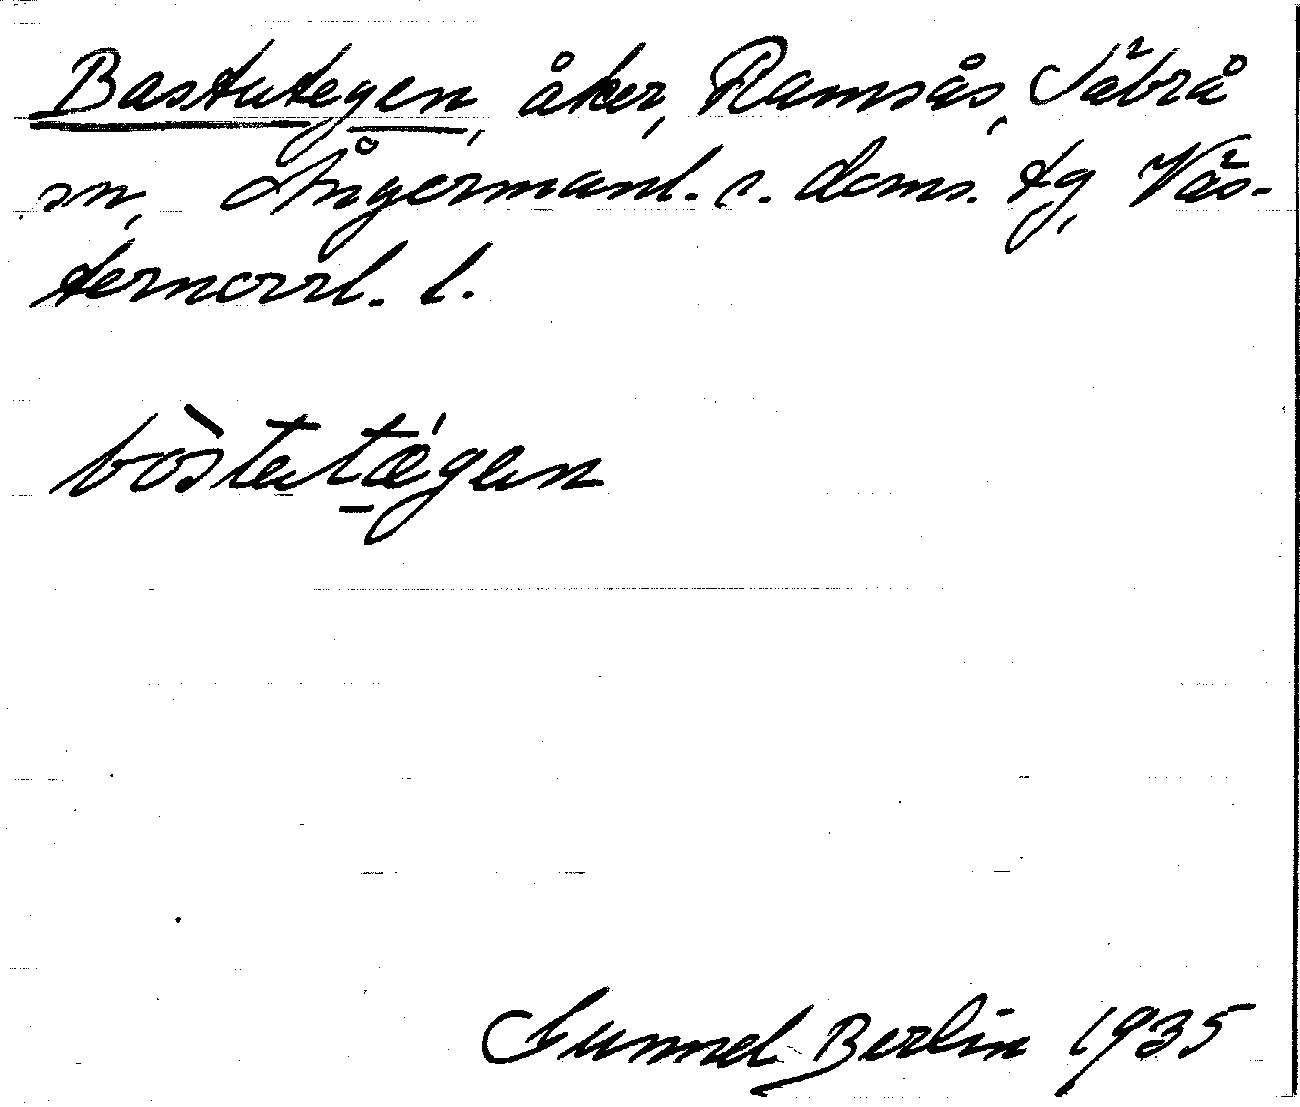 Bastutegen, åker, Ramsås, Säbrå
sn, Ångermanl. s. doms. tg, Väs-
ternorrl. l.
bòstatǽgen
Gunnel Berlin 1935